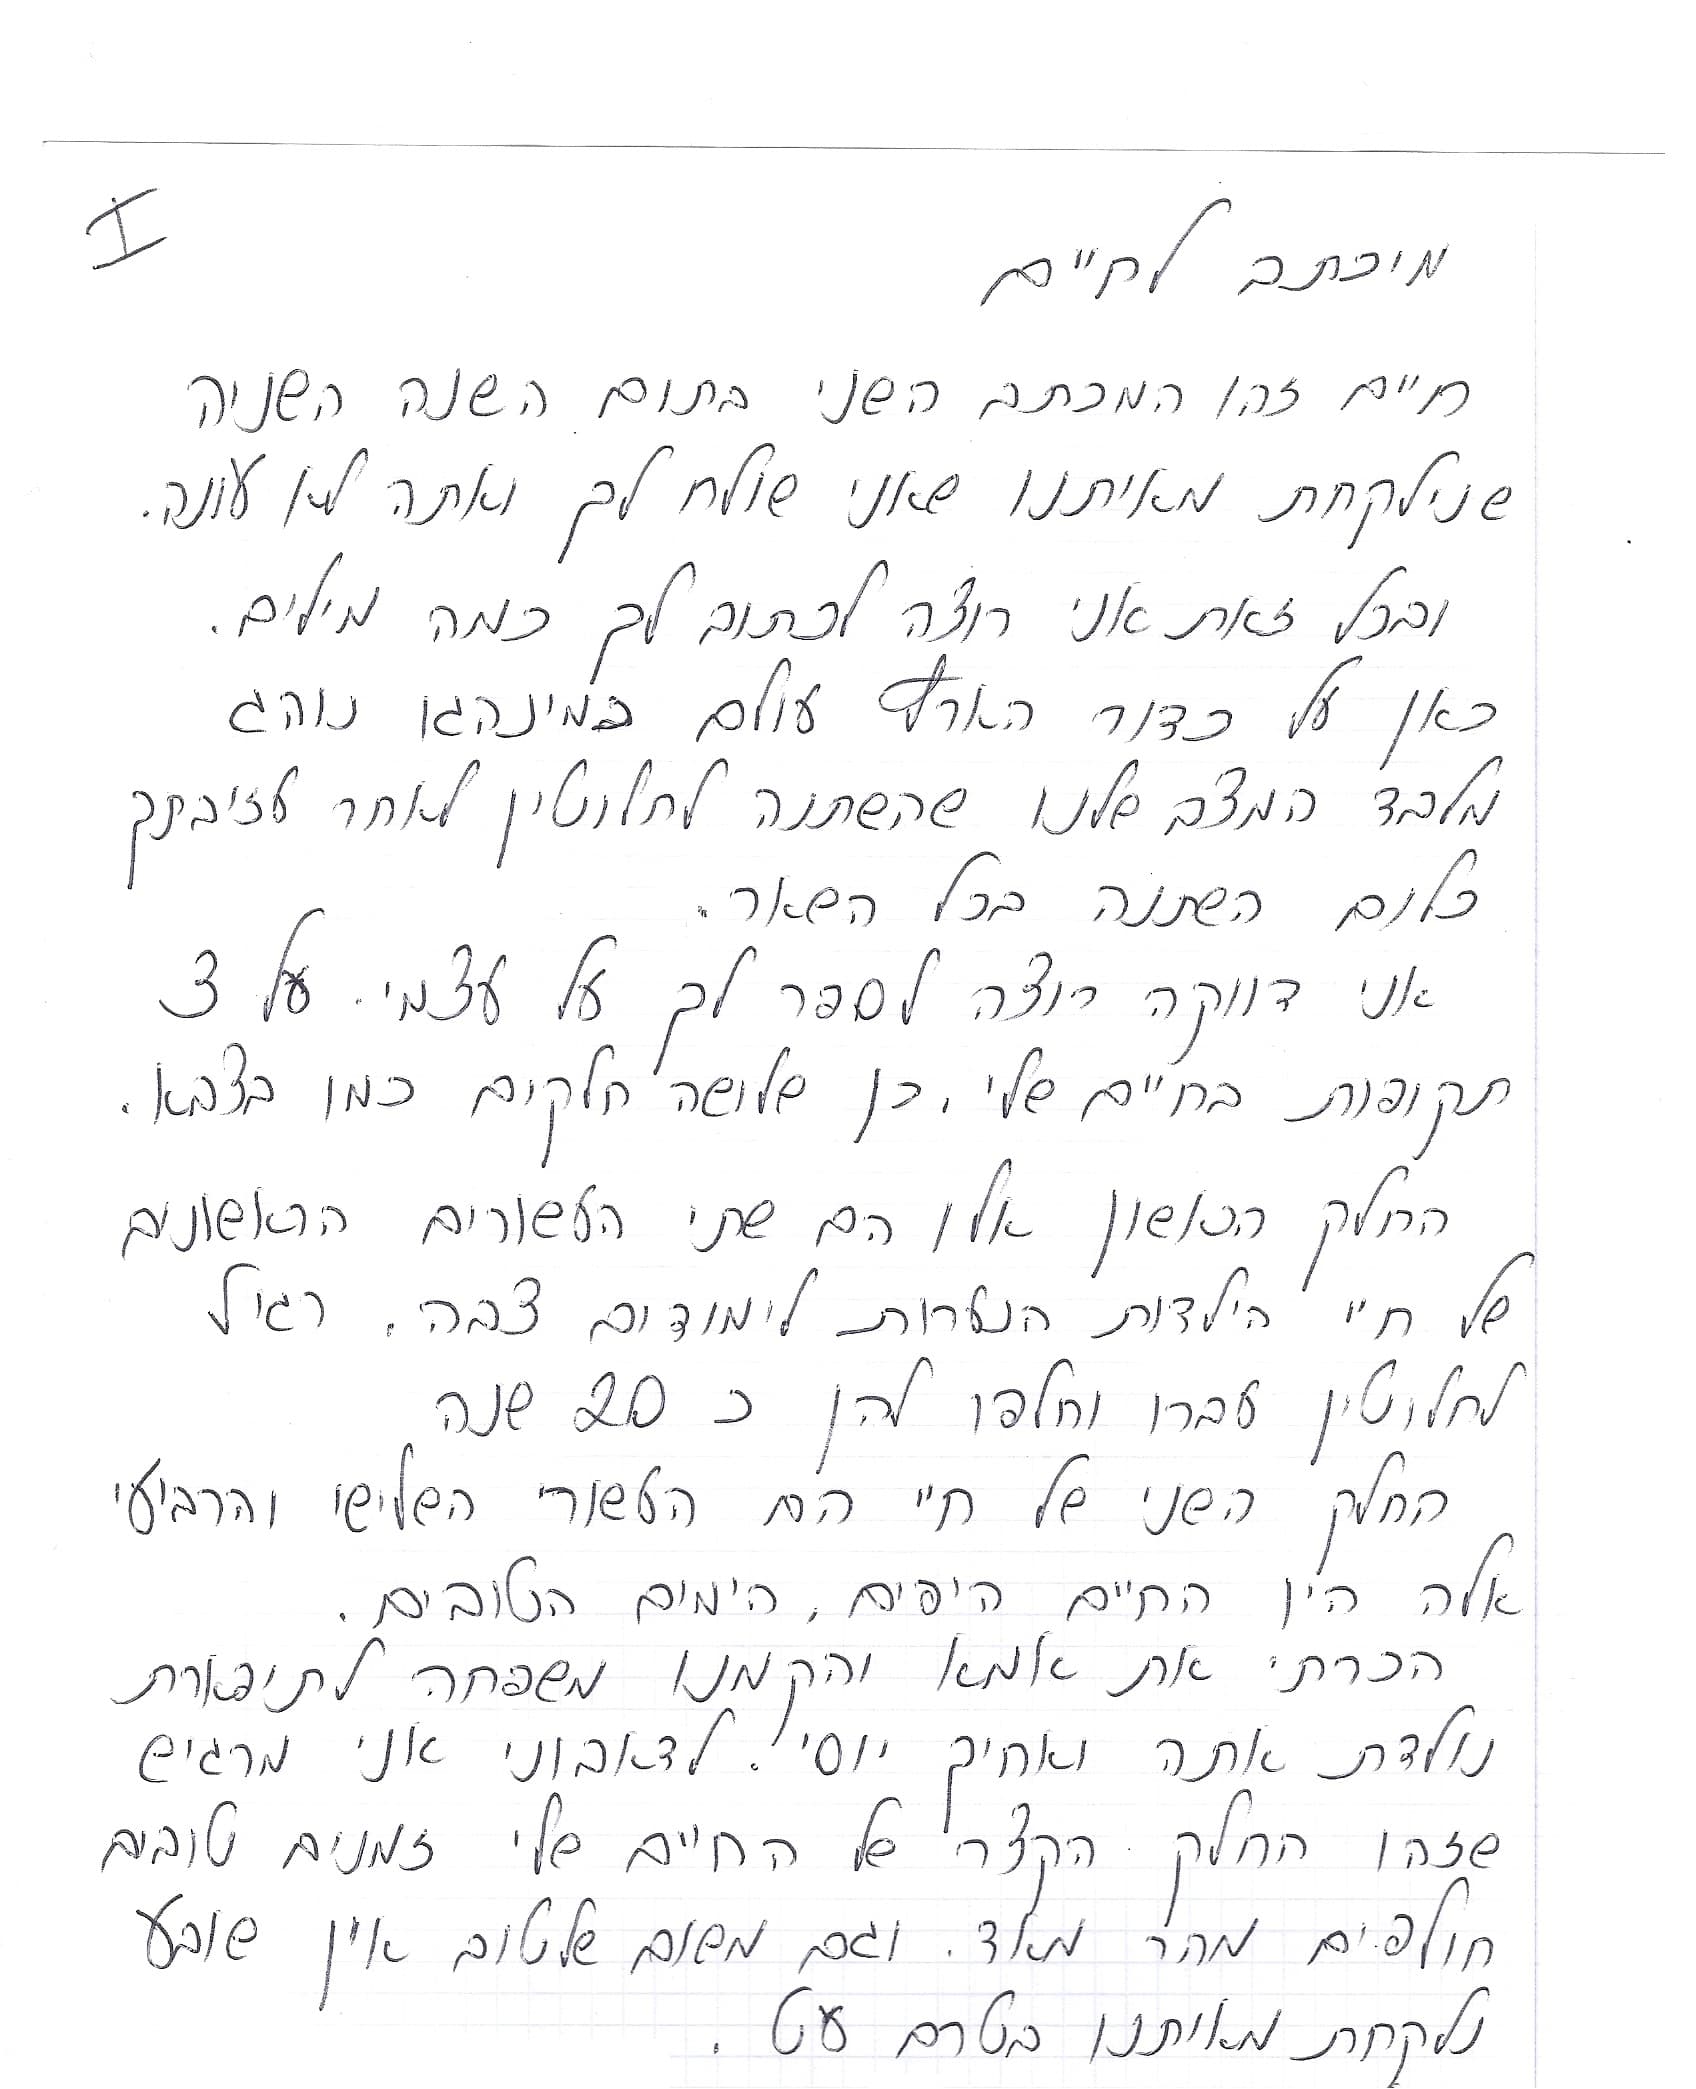 I
מיכתב לחיים
חיים זהו המכתב השני בתום השנה השניה
שנילקחת מאיתנו שאני שולח לך ואתה לא עונה.
ובכל זאת אני רוצה לכתוב לך כמה מילים.
כאן על כדור הארץ עולם כמינהגו נוהג
מלבד המצב שלנו שהשתנה לחלוטין לאחר עזיבתך
כלום השתנה בכל השאר.
אני דווקה רוצה לספר לך על עצמי. על 3
תקופות בחיים שלי, כן שלושה חלקים כמו בצבא.
החלק הראשון אלו הם שתי העשורים הראשונים
של חיי הילדות הנערות לימודים צבה. רגיל
לחלוטין עברו וחלפו להן כ 20 שנה
החלק השני של חיי הם העשורי השלישי והרביעי
אלה היו החיים היפים, הימים הטובים.
הכרתי את אמא והקמנו משפחה לתיפארת
נולדת אתה ואחיך יוסי. לדאבוני אני מרגיש
שזהו החלק הקצר של החיים שלי זמנים טובים
חולפים מהר מאד. וגם משום שלטוב אין שובע
נלקחת מאיתנו בטרם עט.